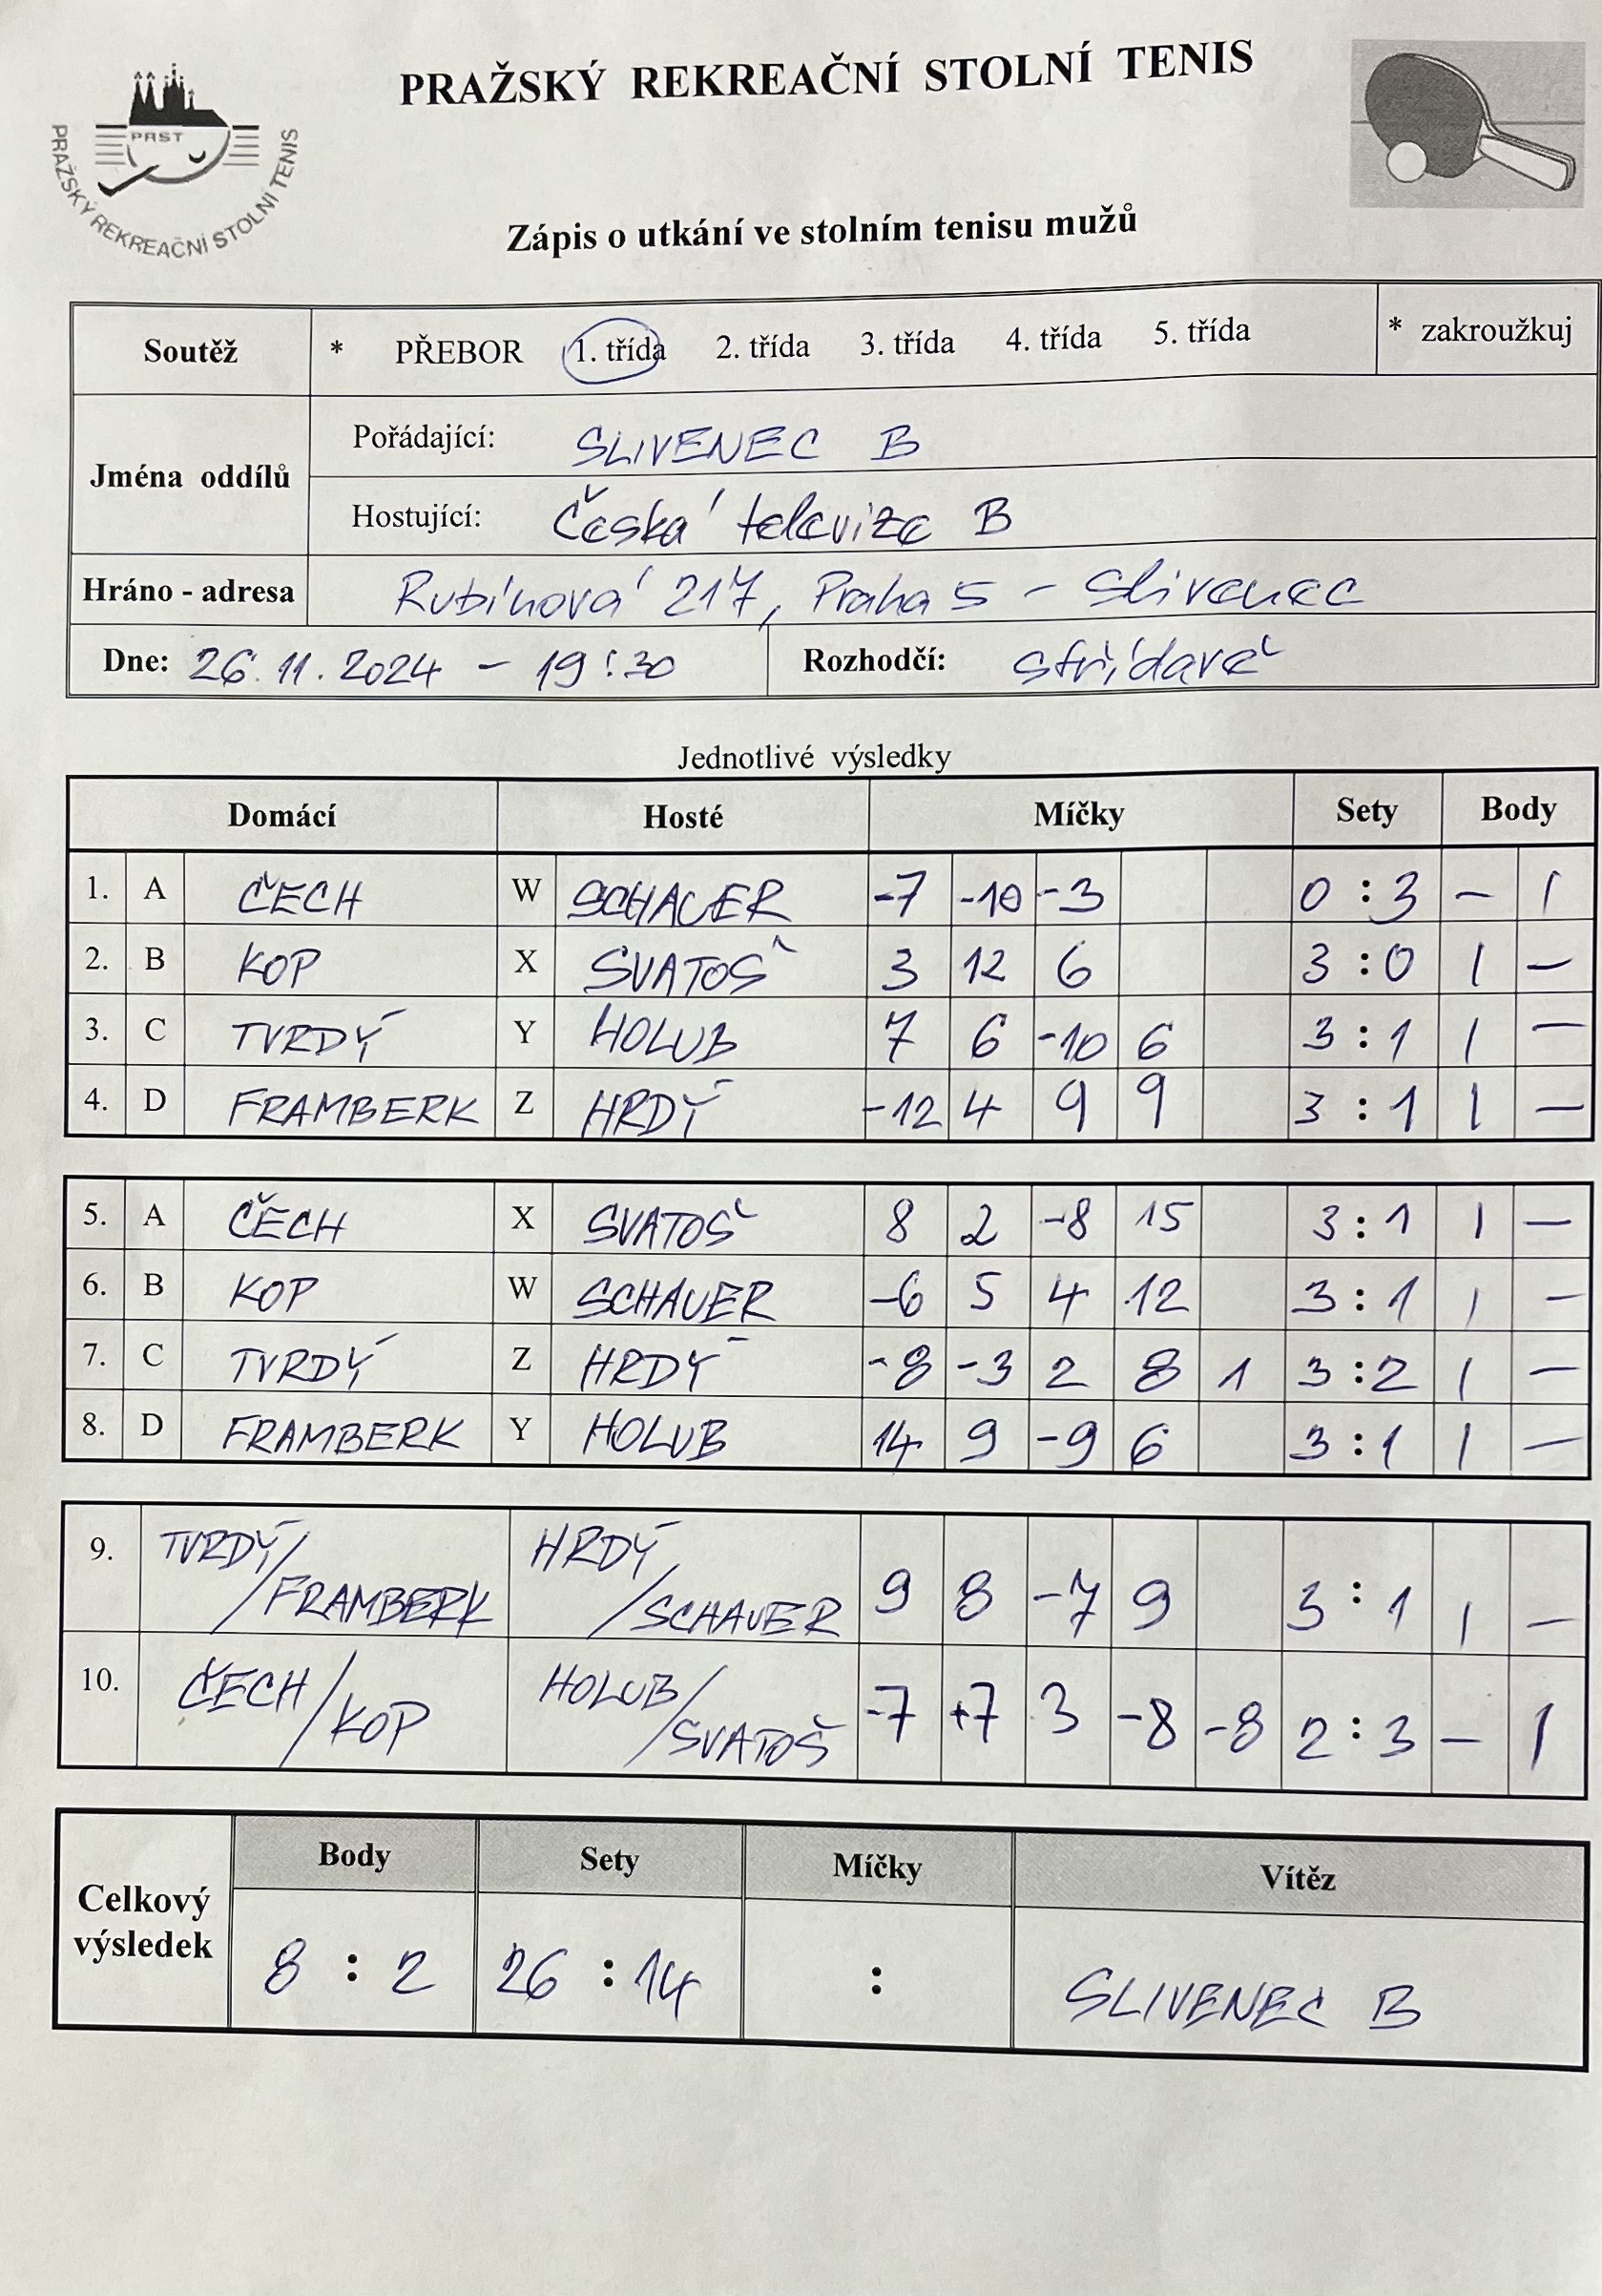 PRAŽSKÝ REKREAČNÍ STOLNÍ TENIS
PRST
PRAŽSKÝ REKREAČNÍ STOLNÍ TENIS
Zápis o utkání ve stolním tenisu mužů
Soutěž * PŘEBOR 1. třída 2. třída 3. třída 4. třída 5. třída * zakroužkuj
Jména oddílů
Pořádající: SLIVENEC B
Hostující: Česká televize B
Hráno - adresa Rubínová 217, Praha 5 - Slivenec
Dne: 26.11.2024 - 19:30 Rozhodčí: střídavě
Jednotlivé výsledky
Domácí Hosté Míčky Sety Body
1. A ČECH W SCHAUER -7 -10 -3 0 : 3 - 1
2. B KOP X SVATOŠ 3 12 6 3 : 0 1 -
3. C TVRDÝ Y HOLUB 7 6 -10 6 3 : 1 1 -
4. D FRAMBERK Z HRDÝ -12 4 9 9 3 : 1 1 -
5. A ČECH X SVATOŠ 8 2 -8 15 3 : 1 1 -
6. B KOP W SCHAUER -6 5 4 12 3 : 1 1 -
7. C TVRDÝ Z HRDÝ -8 -3 2 8 1 3 : 2 1 -
8. D FRAMBERK Y HOLUB 14 9 -9 6 3 : 1 1 -
9. TVRDÝ/FRAMBERK HRDÝ/SCHAUER 9 8 -7 9 3 : 1 1 -
10. ČECH/KOP HOLUB/SVATOŠ -7 +7 3 -8 -8 2 : 3 - 1
Celkový výsledek
Body Sety Míčky Vítěz
8 : 2 26 : 14 : SLIVENEC B